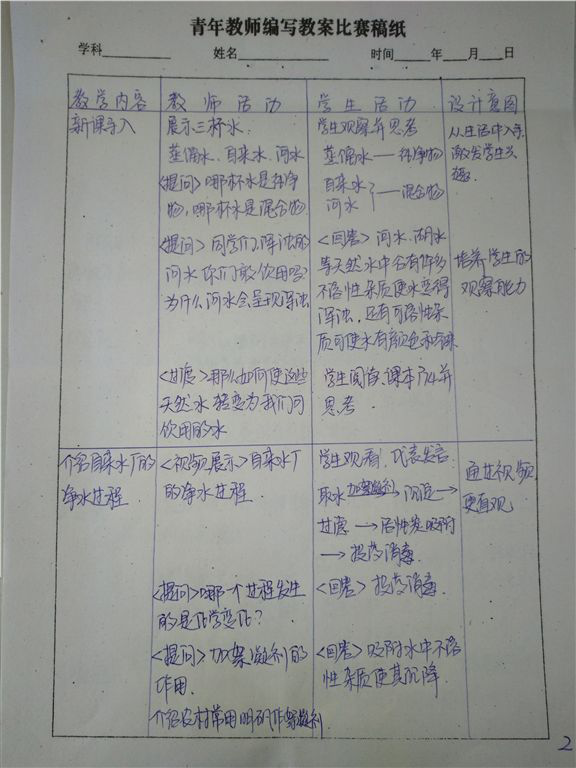 青年教师编写教案比赛稿纸
学科 姓名 时间 年 月 日
教学内容 教师活动 学生活动 设计意图
新课导入
展示三杯水.
蒸馏水、自来水、河水
<提问>哪杯水是纯净
物,哪杯水是混合物
<提问>同学们,浑浊的
河水你们敢饮用吗?
为什么河水会呈现浑浊
<过渡>那么如何使这些
天然水转变为我们可
饮用的水
学生观察并思考
蒸馏水——纯净物
自来水
河水 }——混合物
<回答>河水、湖水
等天然水中含有许多
不溶性杂质使水变得
浑浊,还有可溶性杂
质可使水有颜色和气味
学生阅读课本P74并
思考
从生活中入手
激发学生兴
趣.
培养学生的
观察能力
介绍自来水厂的
净水过程
<视频展示>自来水厂
的净水过程.
<提问>哪一个过程发生
的是化学变化?
<提问>加絮凝剂的
作用.
介绍农村常用明矾作絮凝剂
学生观看,代表发言
取水 加絮凝剂→ 沉淀→
过滤→活性炭吸附
→投药消毒.
<回答>投药消毒.
<回答>吸附水中不溶
性杂质使其沉降.
通过视频
更直观
2